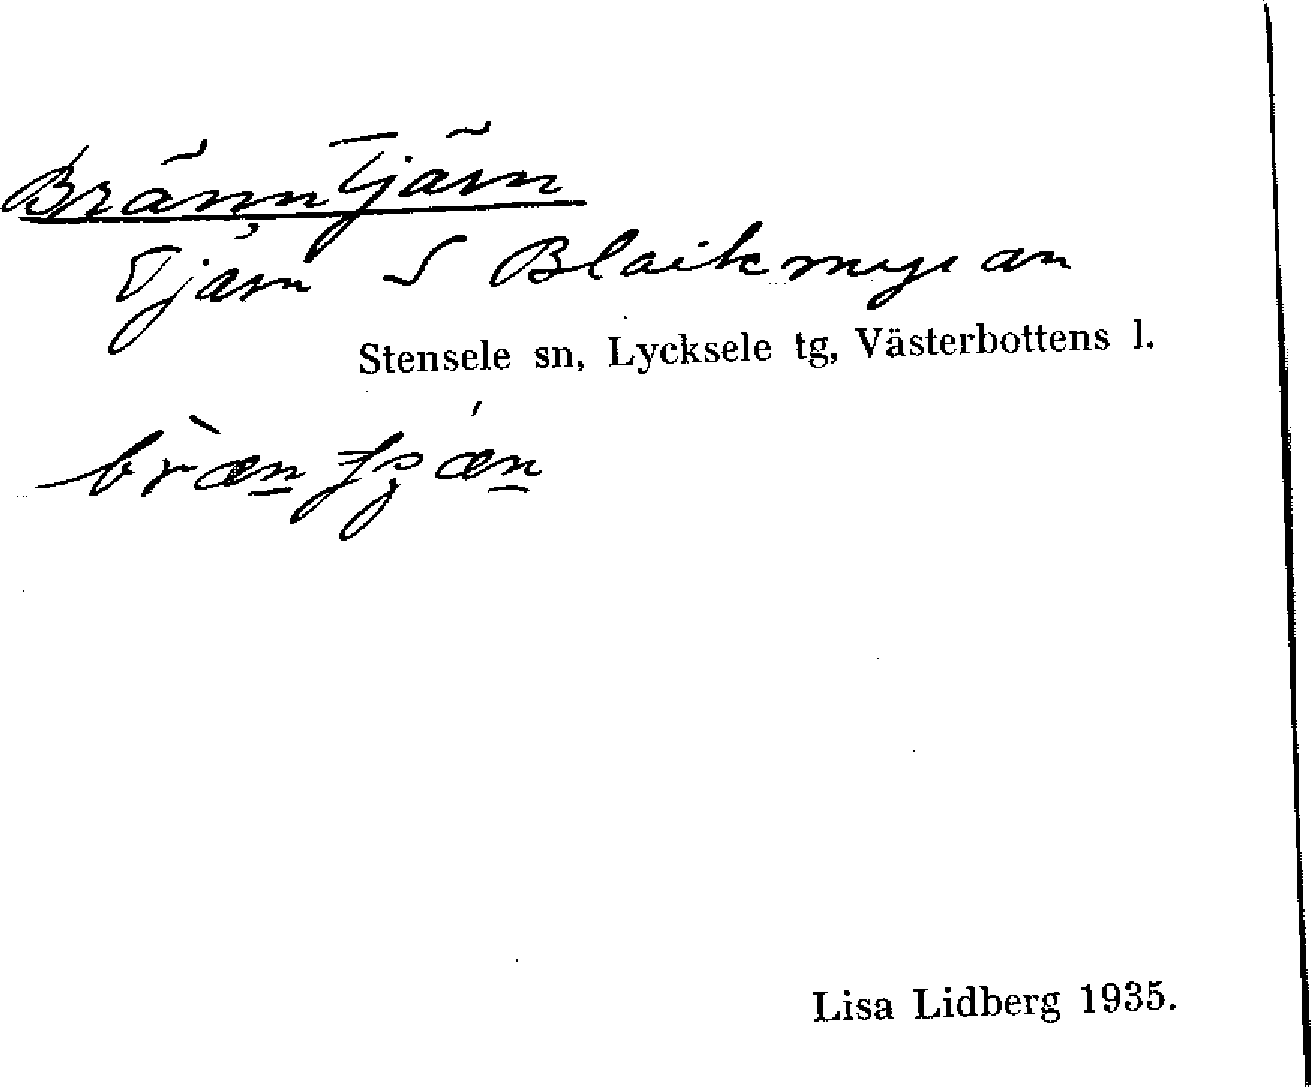 Bränntjärn
Tjärn S Blaikmyran
Stensele sn, Lycksele tg, Västerbottens l.
Lisa Lidberg 1935.